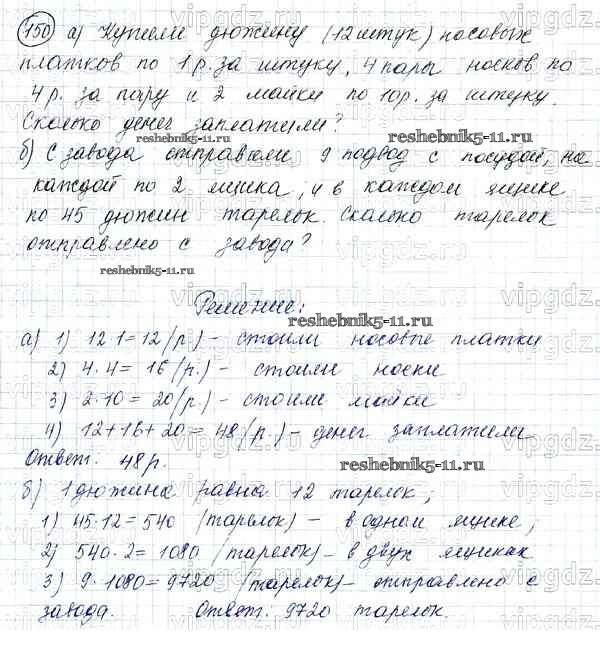 150 а) Купили дюжину (12 штук) носовых
платков по 1 р. за штуку, 4 пары носков по
4 р. за пару и 2 майки по 10 р. за штуку.
Сколько денег заплатили?
reshebnik5-11.ru
б) С завода отправили 9 подвод с посудой, на
каждой по 2 ящика, и в каждом ящике
по 45 дюжин тарелок. Сколько тарелок
отправлено с завода?
reshebnik5-11.ru
Решение:
reshebnik5-11.ru
а) 1) 12·1=12 (р.) – стоили носовые платки
2) 4·4= 16 (р.) – стоили носки
3) 2·10= 20 (р.) – стоили майки
4) 12+16+20= 48 (р.) – денег заплатили
Ответ: 48 р.
reshebnik5-11.ru
б) 1 дюжина равна 12 тарелок;
1) 45·12= 540 (тарелок) – в одном ящике;
2) 540·2= 1080 (тарелок) – в двух ящиках
3) 9·1080= 9720 (тарелок) – отправлено с
завода. Ответ: 9720 тарелок.
vipgdz.ru